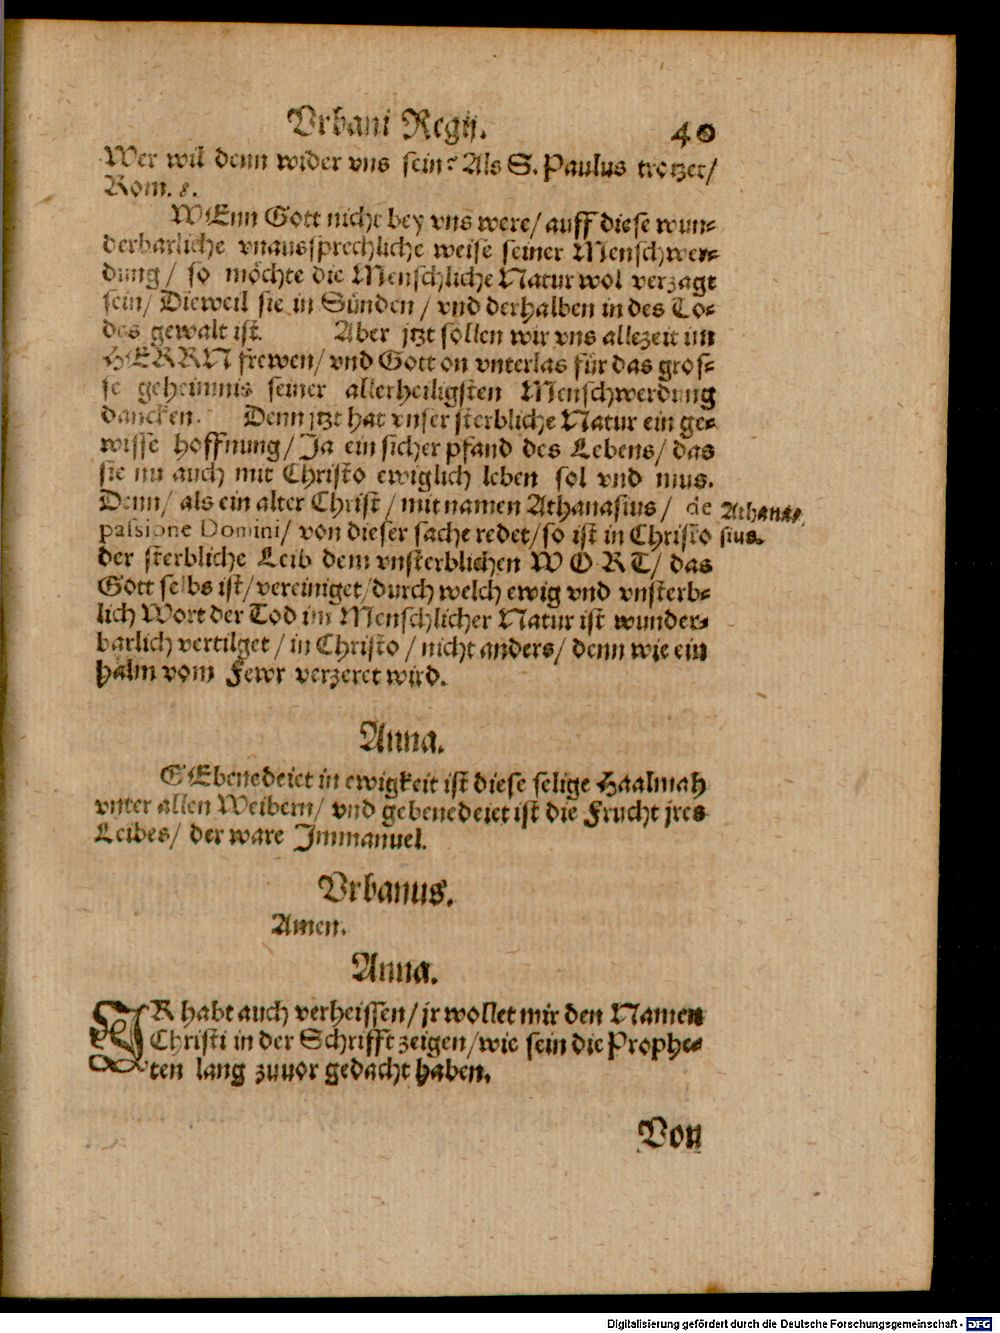 Vrbani Regij. 40
Wer wil denn wider vns sein? Als S. Paulus trotzet/
Rom. 8.
WEnn Gott nicht bey vns were/ auff diese wun-
derbarliche vnaussprechliche weise seiner Menschwer-
dung/ so möchte die Menschliche Natur wol verzagt
sein/ Dieweil sie in Sünden/ vnd derhalben in des To-
des gewalt ist. Aber jtzt sollen wir vns allezeit im
HERRN frewen/ vnd Gott on vnterlas für das gros-
se geheimnis seiner allerheiligsten Menschwerdung
dancken. Denn jtzt hat vnser sterbliche Natur ein ge-
wisse hoffnung/ Ja ein sicher pfand des Lebens/ das
sie nu auch mit Christo ewiglich leben sol vnd mus.
Denn/ als ein alter Christ/ mit namen Athanasius/ de
passione Domini/ von dieser sache redet/ so ist in Christo
Athana-
sius.
der sterbliche Leib dem vnsterblichen WORT/ das
Gott selbs ist/ vereiniget/ durch welch ewig vnd vnsterb-
lich Wort der Tod im Menschlicher Natur ist wunder-
barlich vertilget/ in Christo/ nicht anders/ denn wie ein
halm vom Fewr verzeret wird.
Anna.
GEbenedeiet in ewigkeit ist diese selige Haalmah
vnter allen Weibern/ vnd gebenedeiet ist die Frucht jres
Leibes/ der ware Immanuel.
Vrbanus.
Amen.
Anna.
IR habt auch verheissen/ jr wollet mir den Namen
Christi in der Schrifft zeigen/ wie sein die Prophe-
ten lang zuuor gedacht haben.
Von
Digitalisierung gefördert durch die Deutsche Forschungsgemeinschaft - DFG